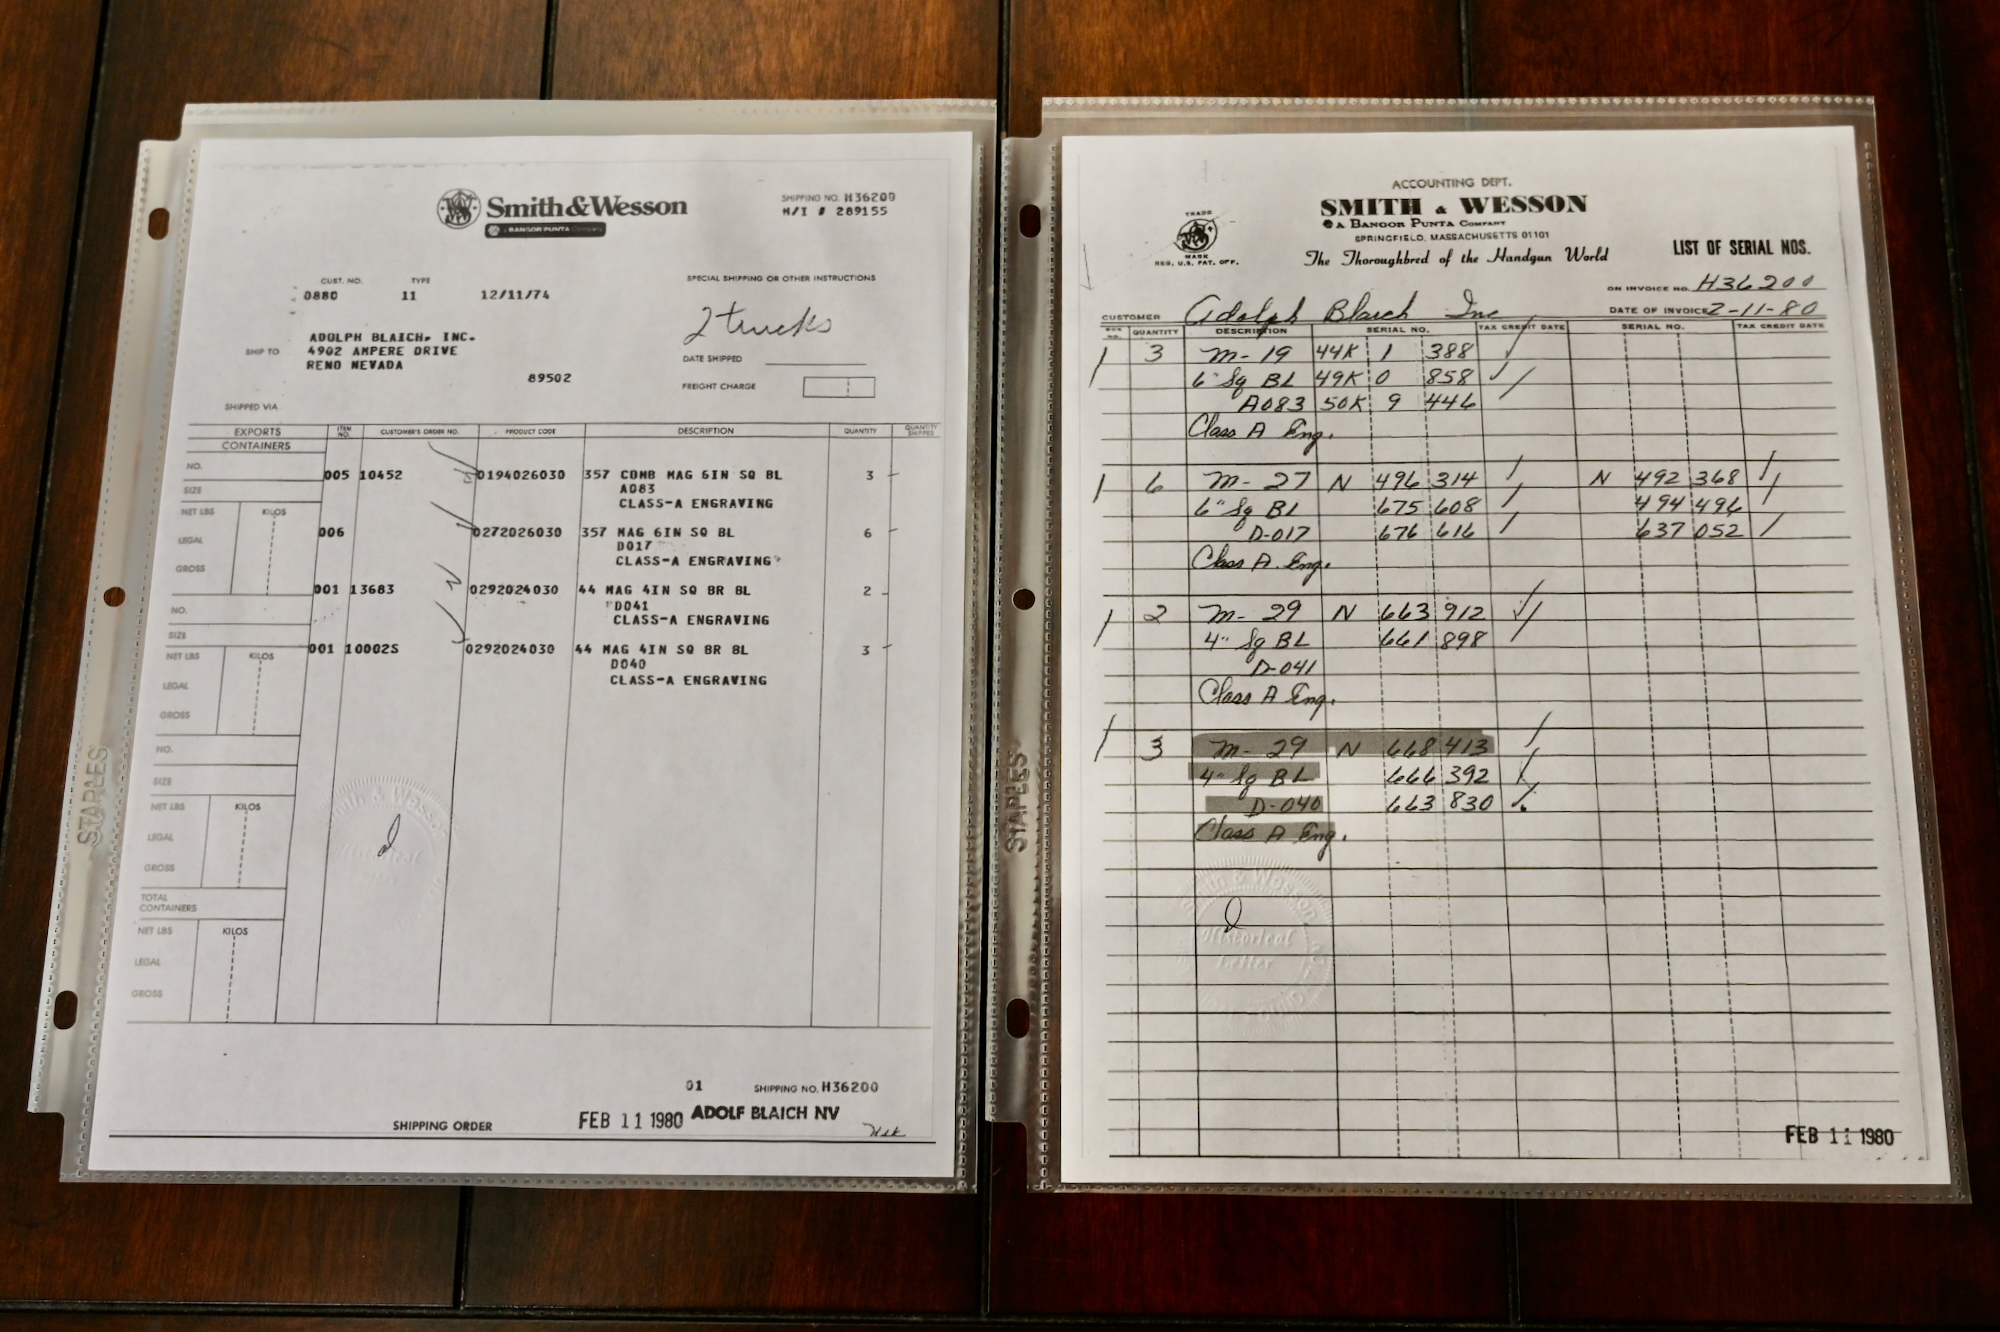 Smith & Wesson
A BANGOR PUNTA Company
SHIPPING NO. H36200
W/I # 289155
CUST. NO. TYPE
0880 11 12/11/74
SPECIAL SHIPPING OR OTHER INSTRUCTIONS
2 trucks
SHIP TO
ADOLPH BLAICH, INC.
4902 AMPERE DRIVE
RENO NEVADA
89502
DATE SHIPPED
FREIGHT CHARGE
SHIPPED VIA
EXPORTS ITEM NO. CUSTOMER'S ORDER NO. PRODUCT CODE DESCRIPTION QUANTITY QUANTITY SHIPPED
CONTAINERS
NO.
SIZE
NET LBS KILOS
LEGAL
GROSS
NO.
SIZE
NET LBS KILOS
LEGAL
GROSS
NO.
SIZE
NET LBS KILOS
LEGAL
GROSS
TOTAL CONTAINERS
NET LBS KILOS
LEGAL
GROSS
005 10452 0194026030 357 COMB MAG 6IN SQ BL 3
A083
CLASS-A ENGRAVING
006 0272026030 357 MAG 6IN SQ BL 6
D017
CLASS-A ENGRAVING
001 13683 0292024030 44 MAG 4IN SQ BR BL 2
D041
CLASS-A ENGRAVING
001 10002S 0292024030 44 MAG 4IN SQ BR BL 3
D040
CLASS-A ENGRAVING
Smith & Wesson
Historical
01 SHIPPING NO. H36200
SHIPPING ORDER FEB 11 1980 ADOLF BLAICH NV
STAPLES
ACCOUNTING DEPT.
SMITH & WESSON
A BANGOR PUNTA COMPANY
SPRINGFIELD, MASSACHUSETTS 01101
The Thoroughbred of the Handgun World
TRADE
MARK
REG. U.S. PAT. OFF.
LIST OF SERIAL NOS.
ON INVOICE NO. H36200
CUSTOMER Adolph Blaich Inc
DATE OF INVOICE 2-11-80
BOX NO. QUANTITY DESCRIPTION SERIAL NO. TAX CREDIT DATE SERIAL NO. TAX CREDIT DATE
3 M-19 44K 1 388
6" Sq BL 49K 0 858
A083 50K 9 446
Class A Eng.
6 M-27 N 496 314 N 492 368
6" Sq BL 675 608 494 496
D-017 676 616 637 052
Class A Eng.
2 M-29 N 663 912
4" Sq BL 661 898
D-041
Class A Eng.
3 M-29 N 668 413
4" Sq BL 666 392
D-040 663 830
Class A Eng.
Smith & Wesson
Historical
Letter
FEB 11 1980
STAPLES